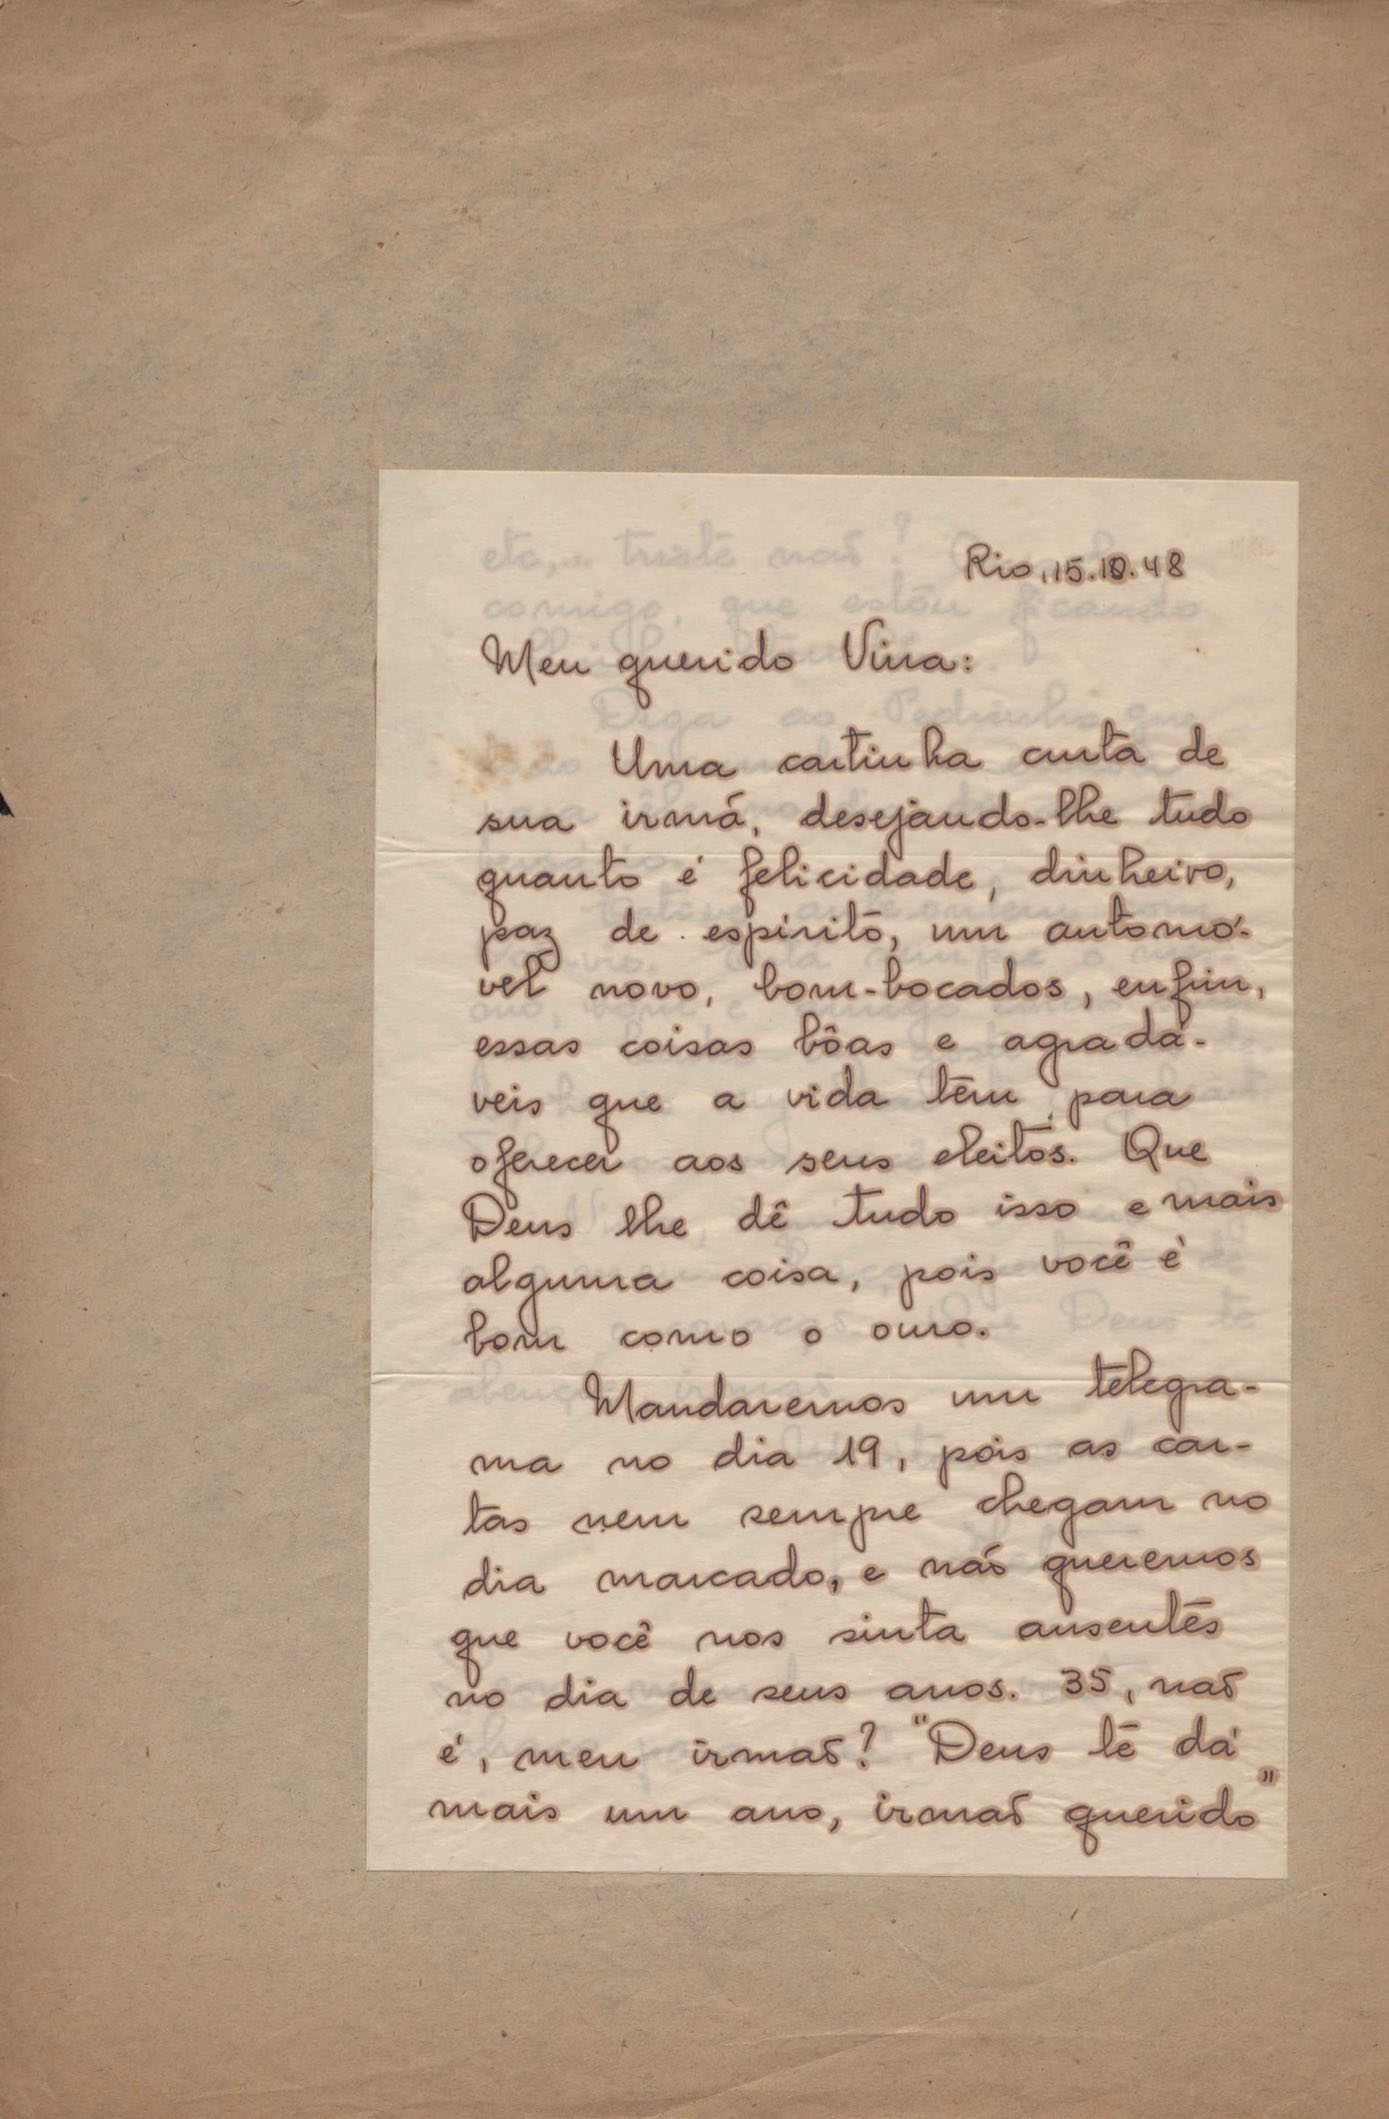 Rio, 15.10.48
Meu querido Vina:
Uma cartinha curta de
sua irmã, desejando-lhe tudo
quanto é felicidade, dinheiro,
paz de espírito, um automó-
vel novo, bom-bocados, enfim,
essas coisas bôas e agradá-
veis que a vida têm para
oferecer aos seus eleitos. Que
Deus lhe dê tudo isso e mais
alguma coisa, pois você é
bom como o ouro.
Mandaremos um telegra-
ma no dia 19, pois as car-
tas nem sempre chegam no
dia marcado, e não queremos
que você nos sinta ausentes
no dia de seus anos. 35, não
é, meu irmão? "Deus te dá
mais um ano, irmão querido"